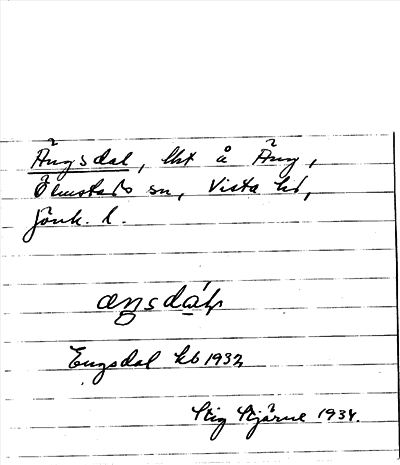 Ängsdal, lht å Äng,
Ölmstads sn, Vista hd,
Jönk. l.
Engsdal kb 1932
Stig Stjärne 1934.